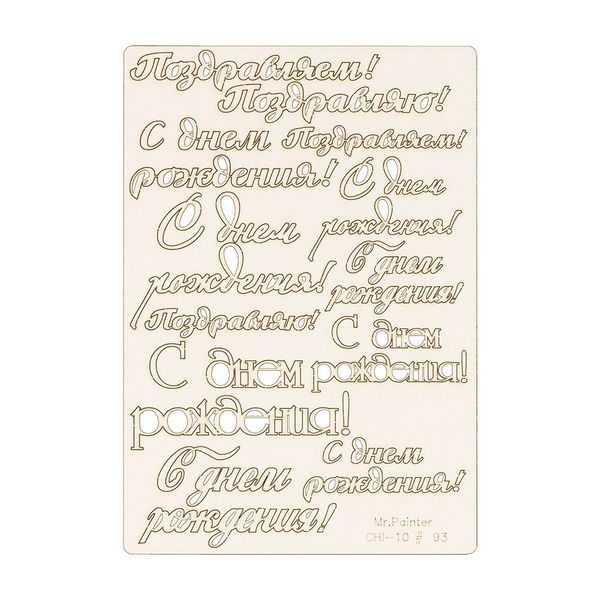 Поздравляем!
Поздравляю!
С днем
рождения!
Поздравляем!
С днем
рождения!
С днем
рождения!
С днем
рождения!
Поздравляю!
С днем
рождения!
С днем
рождения!
С днем
рождения!
С днем
рождения!
Mr.Painter
CHI-10 # 93